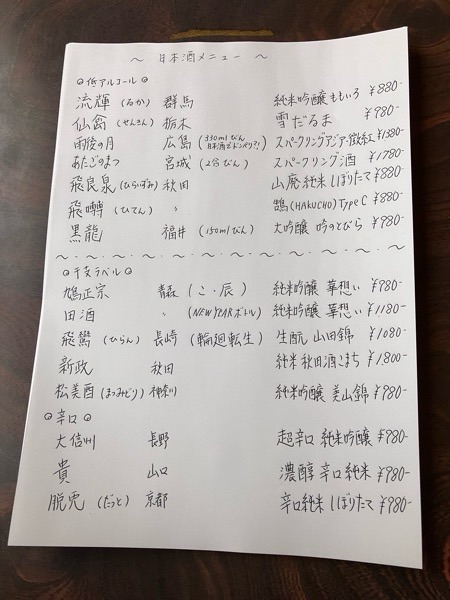 〜 日本酒メニュー 〜
◎低アルコール◎
流輝 (るか) 群馬 純米吟醸 ももいろ ¥880-
仙禽 (せんきん) 栃木 雪だるま ¥980-
雨後の月 広島 (330mlびん 日本酒でドンペリ?!) スパークリングアジア・微紅 ¥1380-
あたごのまつ 宮城 (2合びん) スパークリング酒 ¥1780-
飛良泉 (ひらいずみ) 秋田 山廃純米 しぼりたて ¥880-
飛囀 (ひてん) 〃 鵠 (HAKUCHO) Type C ¥880-
黒龍 福井 (150mlびん) 大吟醸 吟のとびら ¥980-
〜・〜・〜・〜・〜・〜・〜・〜・〜・〜・〜
◎干支ラベル◎
鳩正宗 青森 (こ・辰) 純米吟醸 華想い ¥980-
田酒 〃 (NEW YEARボトル) 純米吟醸 華想い ¥1180-
飛鸞 (ひらん) 長崎 (輪廻転生) 生酛 山田錦 ¥1080-
新政 秋田 純米 秋田酒こまち ¥1,800-
松美酉 (まつみどり) 神奈川 純米吟醸 美山錦 ¥980-
◎辛口◎
大信州 長野 超辛口 純米吟醸 ¥980-
貴 山口 濃醇 辛口 純米 ¥980-
脱兎 (だっと) 京都 辛口純米 しぼりたて ¥980-